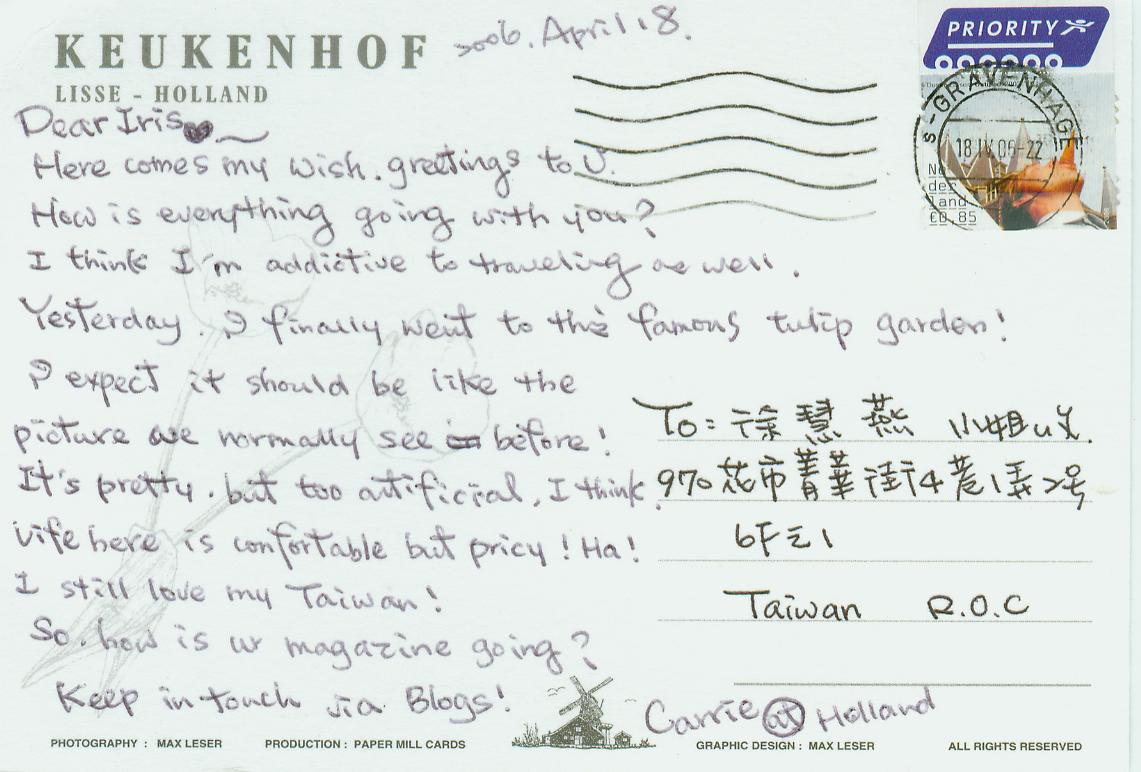 KEUKENHOF
LISSE - HOLLAND
2006. April 18.
PRIORITY
's-GRAVENHAGE
18 IV 06-22
Ne
der
land
€0,85
Dear Iris♥~
Here comes my wish. greetings to U.
How is everything going with you?
I think I'm addictive to traveling as well.
Yesterday. I finally went to the famous tulip garden!
I expect it should be like the
picture we normally see before!
It's pretty. but too artificial, I think.
Life here is confortable but pricy! Ha!
I still love my Taiwan!
So. how is ur magazine going?
Keep in touch via Blogs!
Carrie @ Holland
To: 徐慧燕 小姐 收.
970 花市菁華街4巷1弄2号
6F之1
Taiwan R.O.C
PHOTOGRAPHY : MAX LESER
PRODUCTION : PAPER MILL CARDS
GRAPHIC DESIGN : MAX LESER
ALL RIGHTS RESERVED